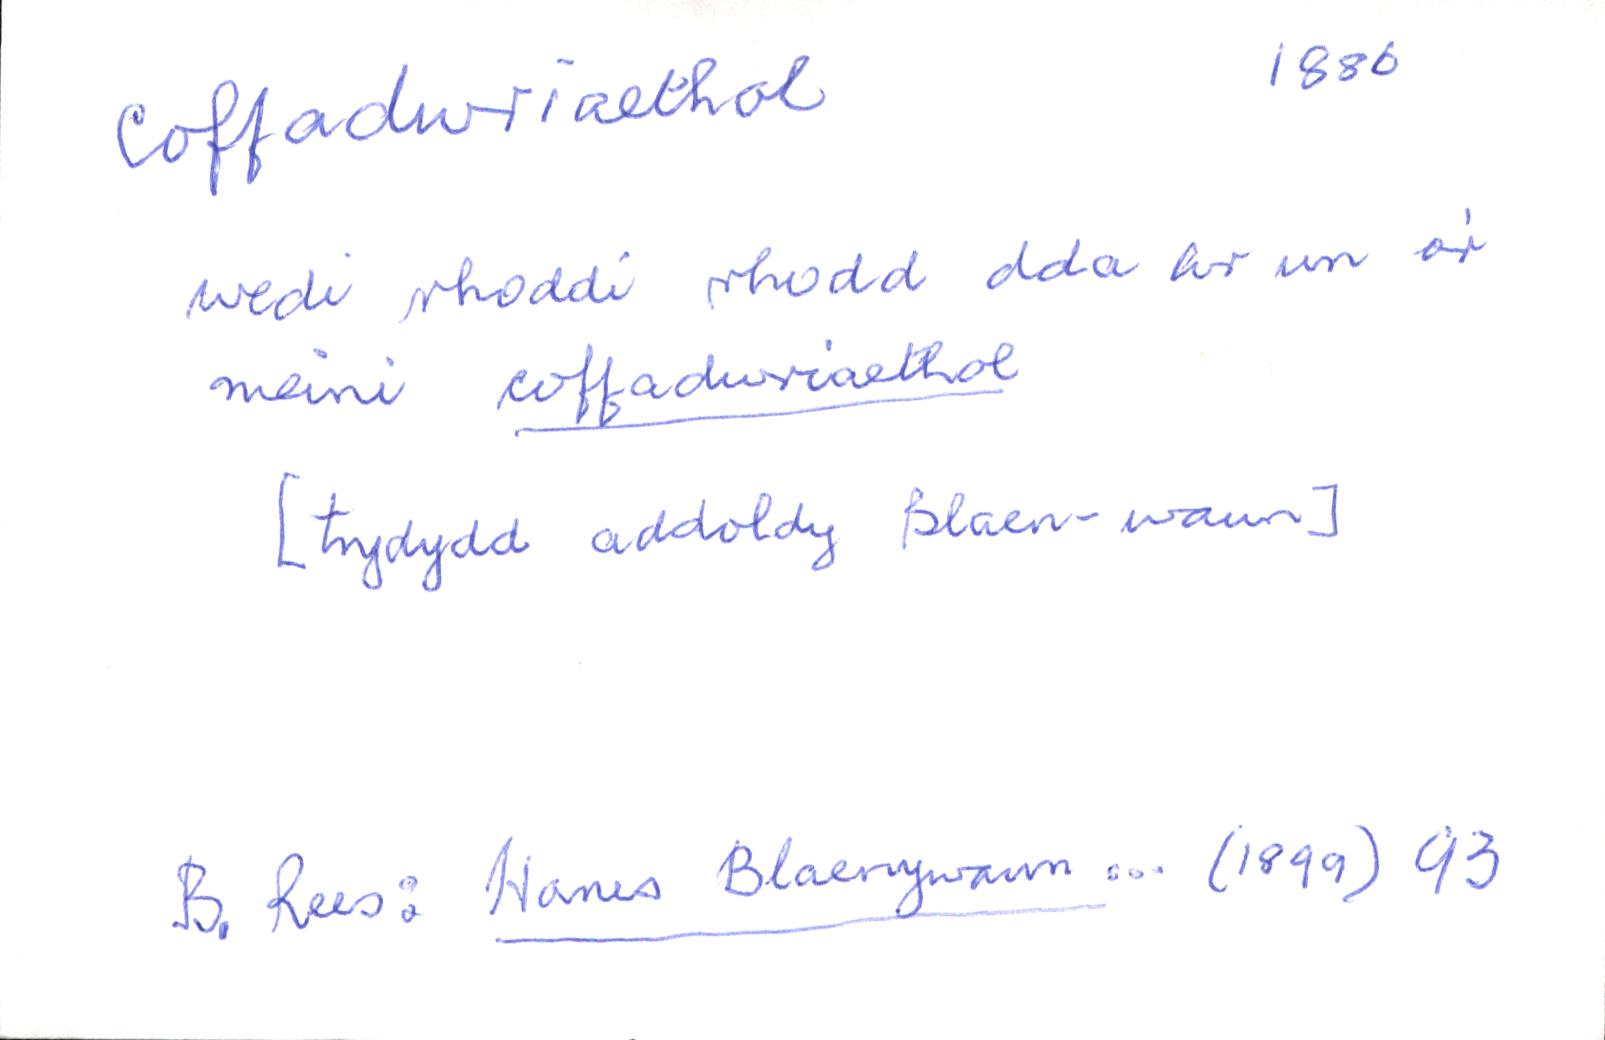 coffadwriaethol 1886
wedi rhoddi rhodd dda ar un o'r
meini coffadwriaethol
[trydydd addoldy Blaen-waun]
B. Rees: Hanes Blaenywaun ... (1899) 93